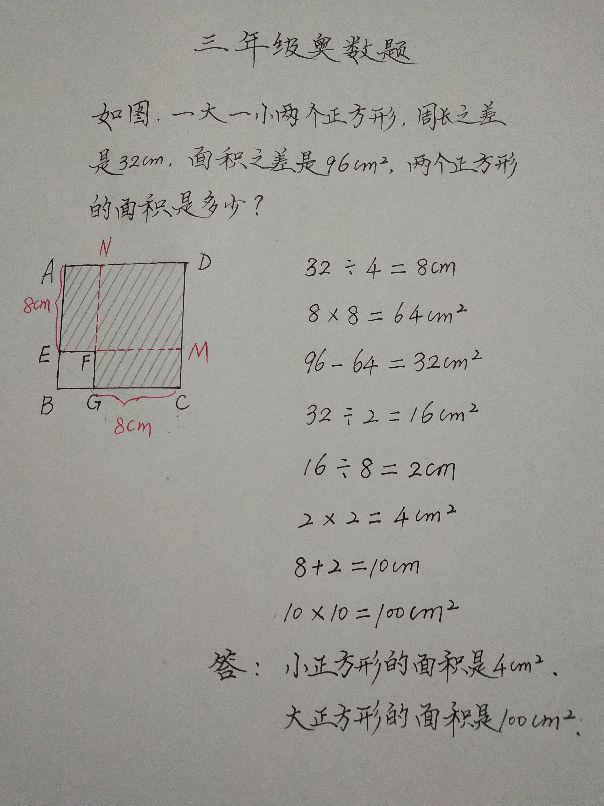 三年级奥数题
如图，一大一小两个正方形，周长之差
是32cm，面积之差是96cm²，两个正方形
的面积是多少？
A N D
8cm
E F M
B G C
8cm
32÷4=8cm
8×8=64cm²
96-64=32cm²
32÷2=16cm²
16÷8=2cm
2×2=4cm²
8+2=10cm
10×10=100cm²
答：小正方形的面积是4cm²、
大正方形的面积是100cm².